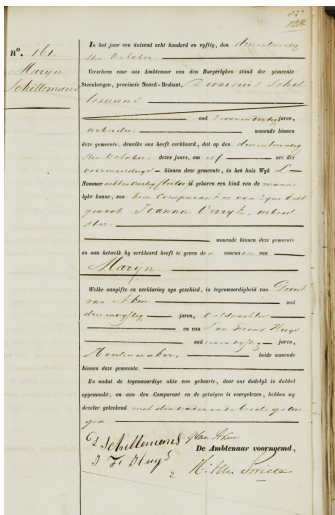 N°. 161.
Maryn
Schillemans
In het jaar een duizend acht honderd en vyftig, den
sten October
Verscheen voor ons Ambtenaar van den Burgerlyken stand der gemeente
Steenbergen, provincie Noord-Brabant, Dionisius Schil
lemans
oud jaren,
arbeider wonende binnen
deze gemeente, dewelke ons heeft verklaard, dat op den
sten October dezes jaars, om elf ure des
voormiddags binnen deze gemeente, in het huis Wyk L
Nommer is geboren een kind van de manne
lyke kunne, van hem Comparant en van zyne Echt
genoot Joanna arbeid
ster
wonende binnen deze gemeente
en aan hetwelk hy verklaard heeft te geven de voornaam van
Maryn
Welke aangifte en verklaring zyn geschied, in tegenwoordigheid van
van Aken oud
jaren, Veldwachter
en van Jan Frans Huys
oud jaren,
beide wonende
binnen deze gemeente.
En nadat de tegenwoordige akte van geboorte, door ons dadelyk in dubbel
opgemaakt, en aan den Comparant en de getuigen is voorgelezen, hebben wy
dezelve geteekend met den comparant en beide getui
gen
D Schillemans van Aken
J F Huys De Ambtenaar voornoemd,